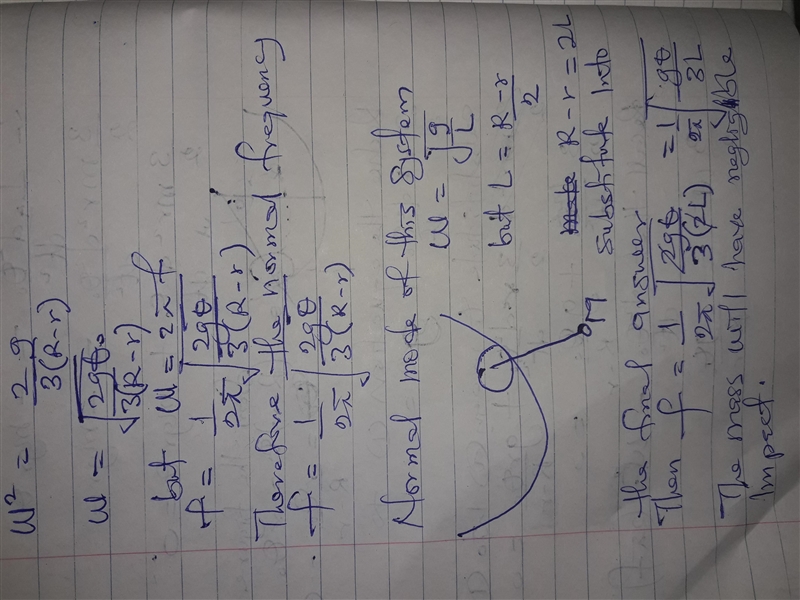 W² = 2g / 3(R-r)
W = √(2gθ / 3(R-r))
but W = 2πf
f = 1/2π √(2gθ / 3(R-r))
Therefore the normal frequency
f = 1/2π √(2gθ / 3(R-r))
Normal mode of this system
W = √(g/L)
but L = R-r / 2
R-r = 2L
substitute into
M
the final answer
Then f = 1/2π √(2gθ / 3(2L)) = 1/2π √(gθ / 3L)
The mass will have negligible
Impact.